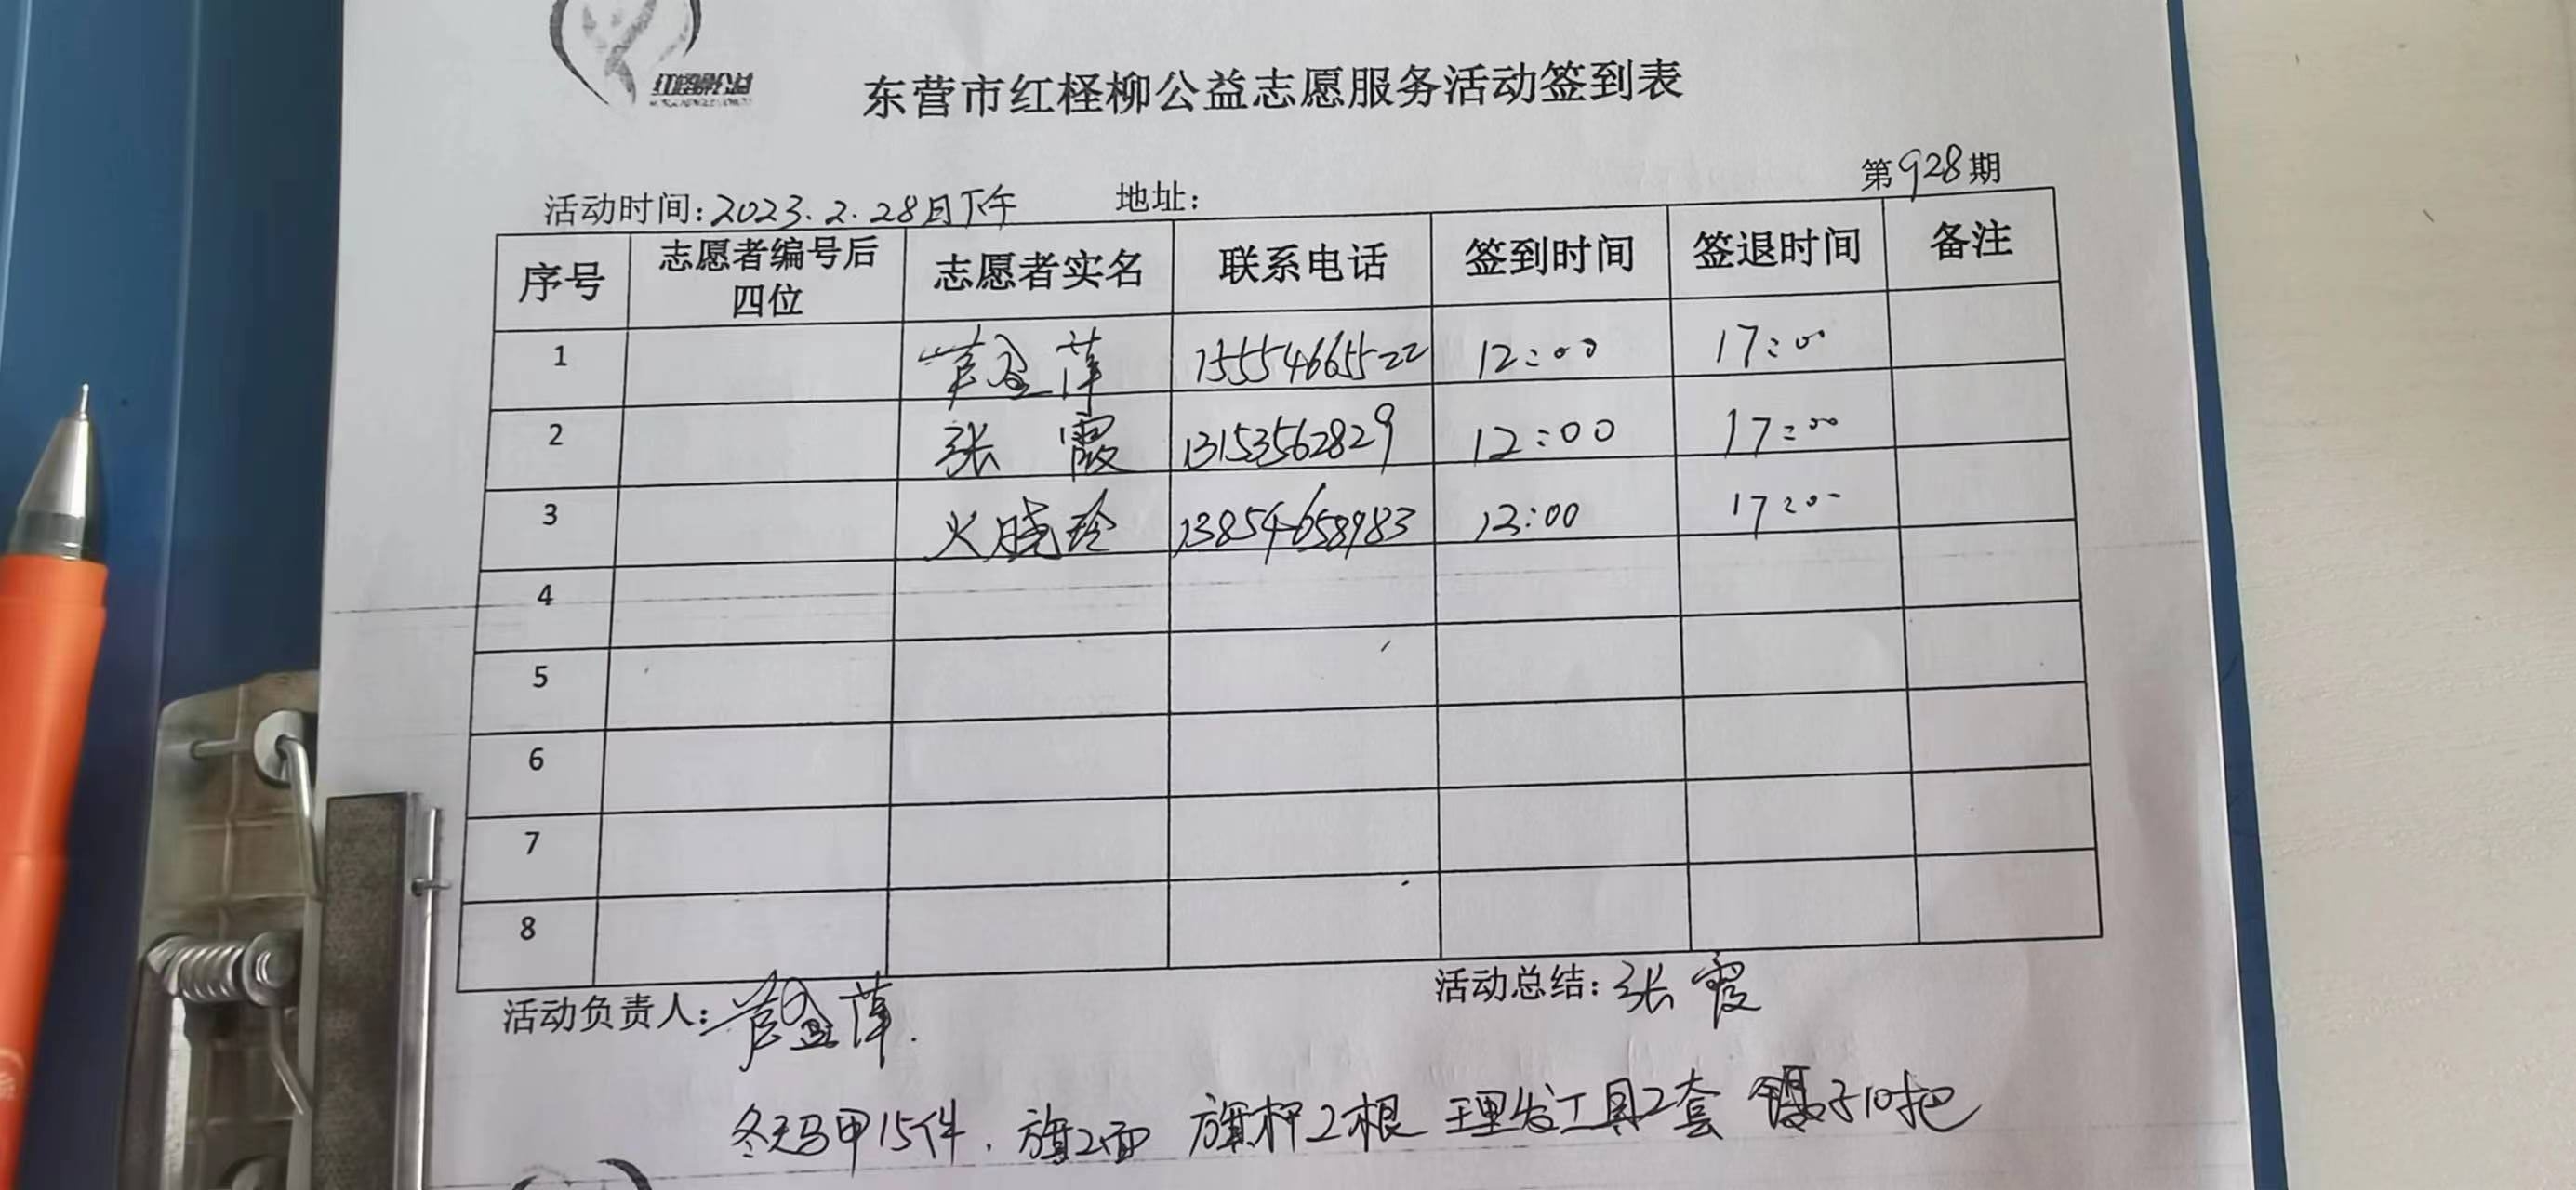 红柽柳公益
东营市红柽柳公益志愿服务活动签到表
第928期
活动时间:2023.2.28日下午 地址:
序号 志愿者编号后四位 志愿者实名 联系电话 签到时间 签退时间 备注
1 15554665522 12:00 17:00
2 张霞 13153562829 12:00 17:00
3 火晓玲 13854658983 12:00 17:00
4
5
6
7
8
活动负责人: 活动总结:张霞
冬天马甲15件.旗2面 旗杆2根 理发工具2套 镊子10把